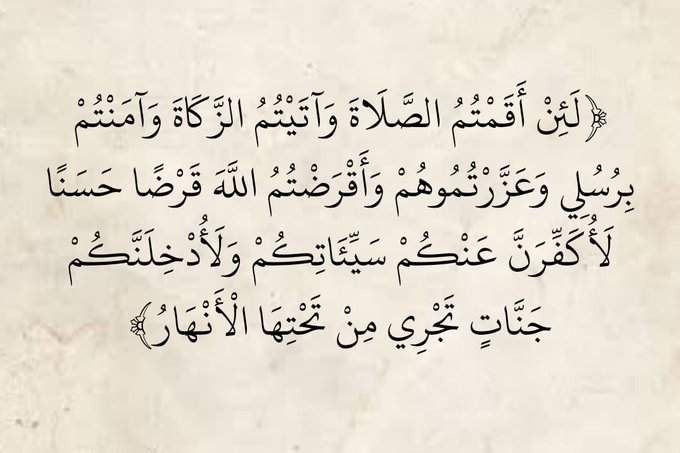 ﴿لَئِنْ أَقَمْتُمُ الصَّلَاةَ وَآتَيْتُمُ الزَّكَاةَ وَآمَنْتُمْ
بِرُسُلِي وَعَزَّرْتُمُوهُمْ وَأَقْرَضْتُمُ اللَّهَ قَرْضًا حَسَنًا
لَأُكَفِّرَنَّ عَنْكُمْ سَيِّئَاتِكُمْ وَلَأُدْخِلَنَّكُمْ
جَنَّاتٍ تَجْرِي مِنْ تَحْتِهَا الْأَنْهَارُ﴾